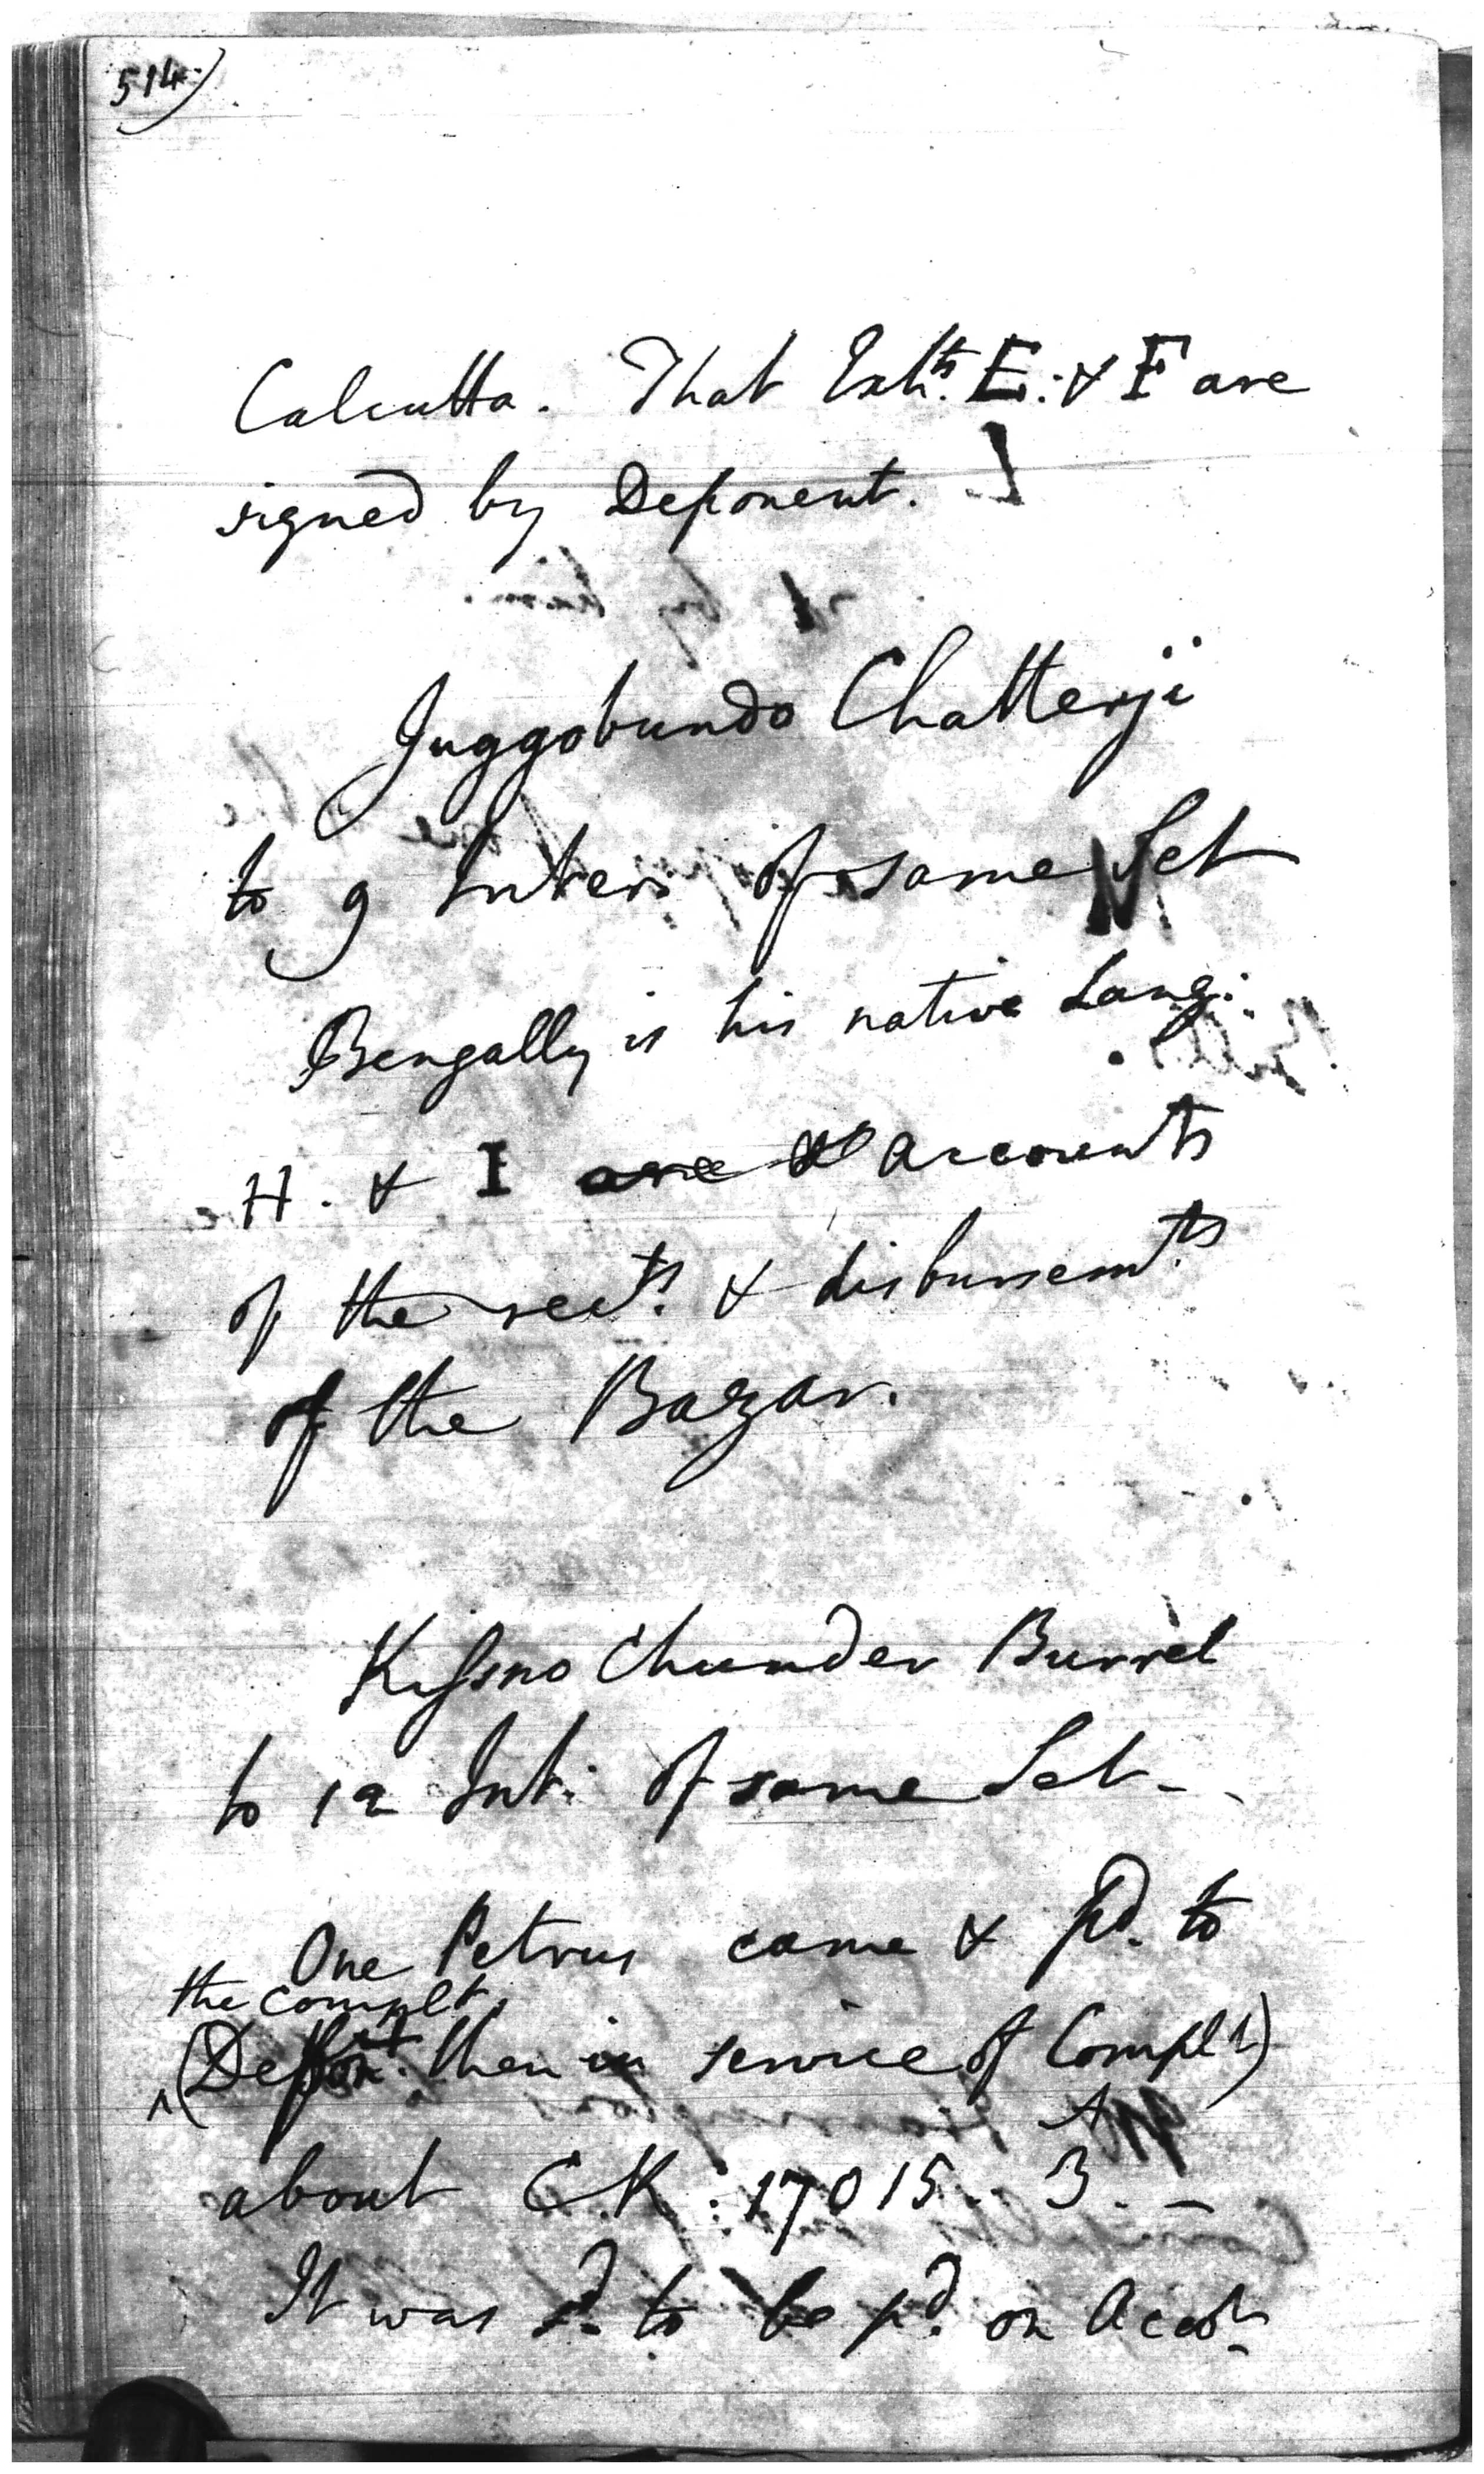 514)
Calcutta. That Exhts. E. & F are
signed by Deponent. ]
Juggobundo Chatterji
to 9 Inter. of same Set
Bengally is his native Lang.
H. & I are accounts
of the rects. & disbursemts.
of the Bazar.
Kissno Chunder Burrel
to 12 Int. of same Set -
One Petrus came & pd. to
the complt.
(Dept. then in service of Complt)
about C.R: 17015. 3. -
It was sd. to be pd. on Accot